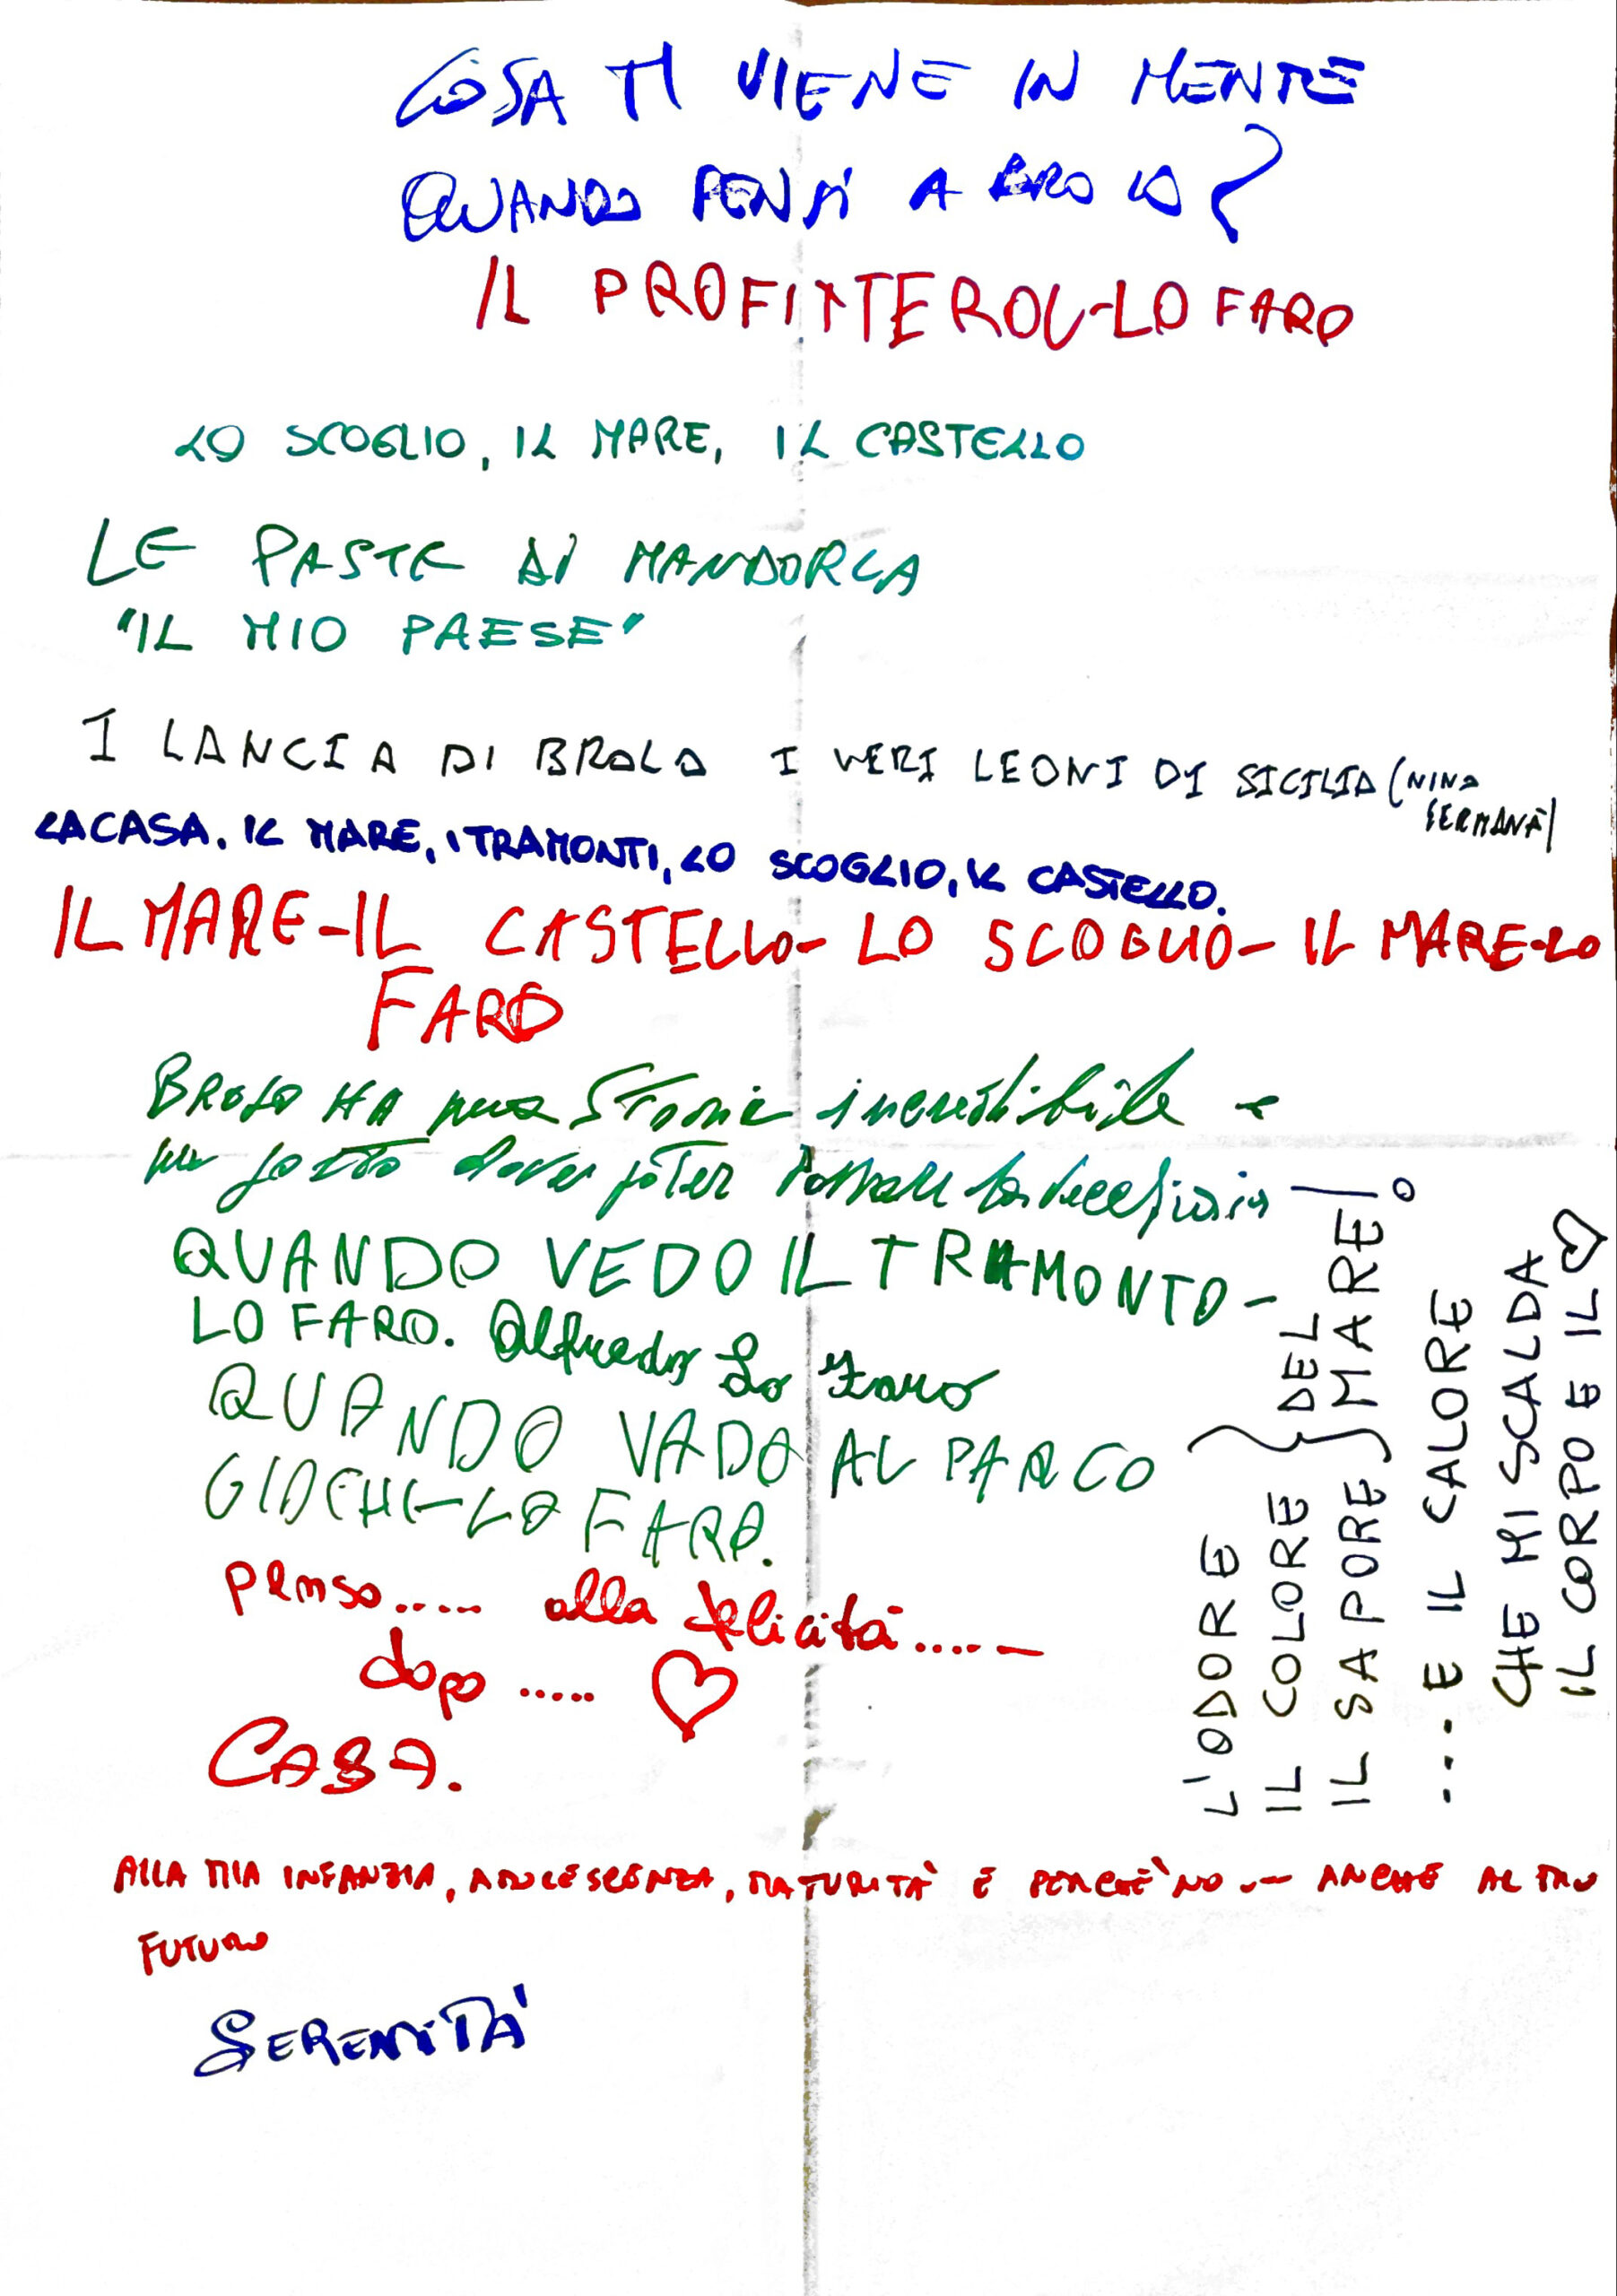 COSA TI VIENE IN MENTE
QUANDO PENSI A BROLO?
IL PROFITTEROL-LO FARO
LO SCOGLIO, IL MARE, IL CASTELLO
LE PASTE DI MANDORLA
"IL MIO PAESE"
I LANCIA DI BROLO I VERI LEONI DI SICILIA (NINO
GERMANÀ)
LA CASA. IL MARE, I TRAMONTI, LO SCOGLIO, IL CASTELLO.
IL MARE-IL CASTELLO- LO SCOGLIO- IL MARE-LO
FARO
BROLO HA una Storia incredibile e
un posto dove poter
QUANDO VEDO IL TRAMONTO-
LO FARO. Alfredo Lo Faro
QUANDO VADO AL PARCO
GIOCHI-LO FARO.
penso..... alla felicità......
dopo ..... ♡
CASA.
L'ODORE
IL COLORE } DEL
IL SAPORE } MARE!
... E IL CALORE
CHE MI SCALDA
IL CORPO E IL ♡
ALLA MIA INFANZIA, ADOLESCENZA, MATURITÀ E PERCHÈ NO ... ANCHE AL MIO
FUTURO
SERENITÀ